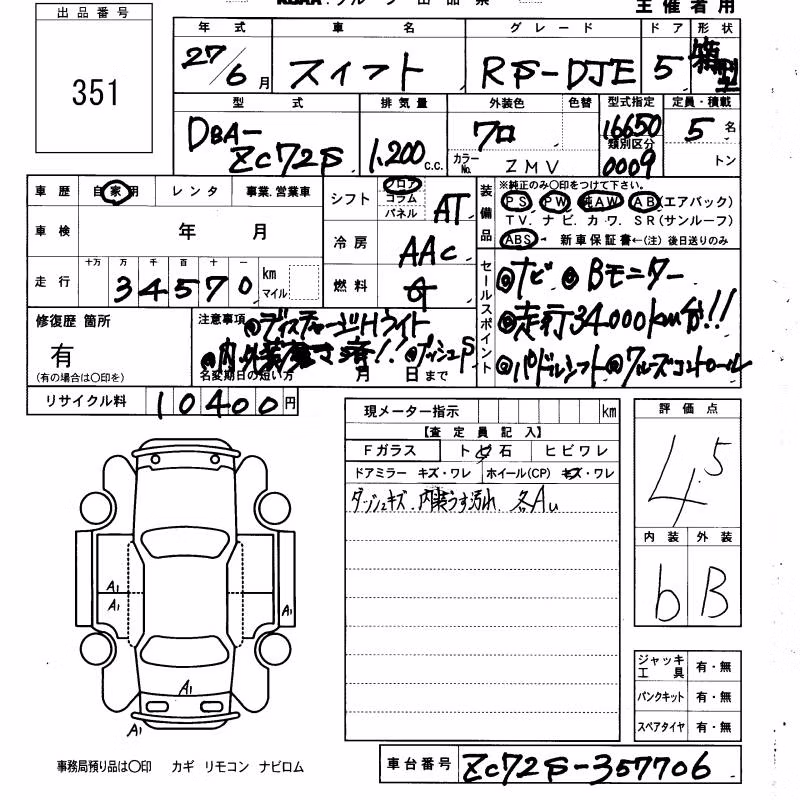 主催者用
出品番号
351
年式 車名 グレード ドア 形状
27/6月 スイフト RS-DJE 5 箱型
型式 排気量 外装色 色替 型式指定 定員・積載
DBA-ZC72S 1,200c.c. クロ 16650 5名
類別区分
カラーNo. ZMV 0009 トン
車歴 自家用 レンタ 事業.営業車
車検 年 月
走行 十万 万 千 百 十 一
34570 km マイル
シフト フロア コラム パネル AT
冷房 AAC
燃料 G
装備品
※純正のみ〇印をつけて下さい。
PS PW 純AW AB(エアバック)
TV. ナビ. カワ. SR(サンルーフ)
ABS 新車保証書←(注) 後日送りのみ
セールスポイント
◎ナビ ◎Bモニター
◎走行34000km台!!
◎パドルシフト◎クルーズコントロール
修復歴 箇所
有
(有の場合は〇印を)
注意事項
◎ディスチャージHライト
◎内外装磨き済!! ◎プッシュS
名変期日の短い方 月 日まで
リサイクル料 10400円
現メーター指示 km
【査定員記入】
Fガラス トビ石 ヒビワレ
ドアミラー キズ・ワレ ホイール(CP) キズ・ワレ
ダッシュキズ. 内装うす汚れ. 各AU
評価点
4.5
内装 外装
b B
A1
A1
A1
A1
A1
ジャッキ工具 有・無
パンクキット 有・無
スペアタイヤ 有・無
事務局預り品は〇印 カギ リモコン ナビロム
車台番号 ZC72S-357706